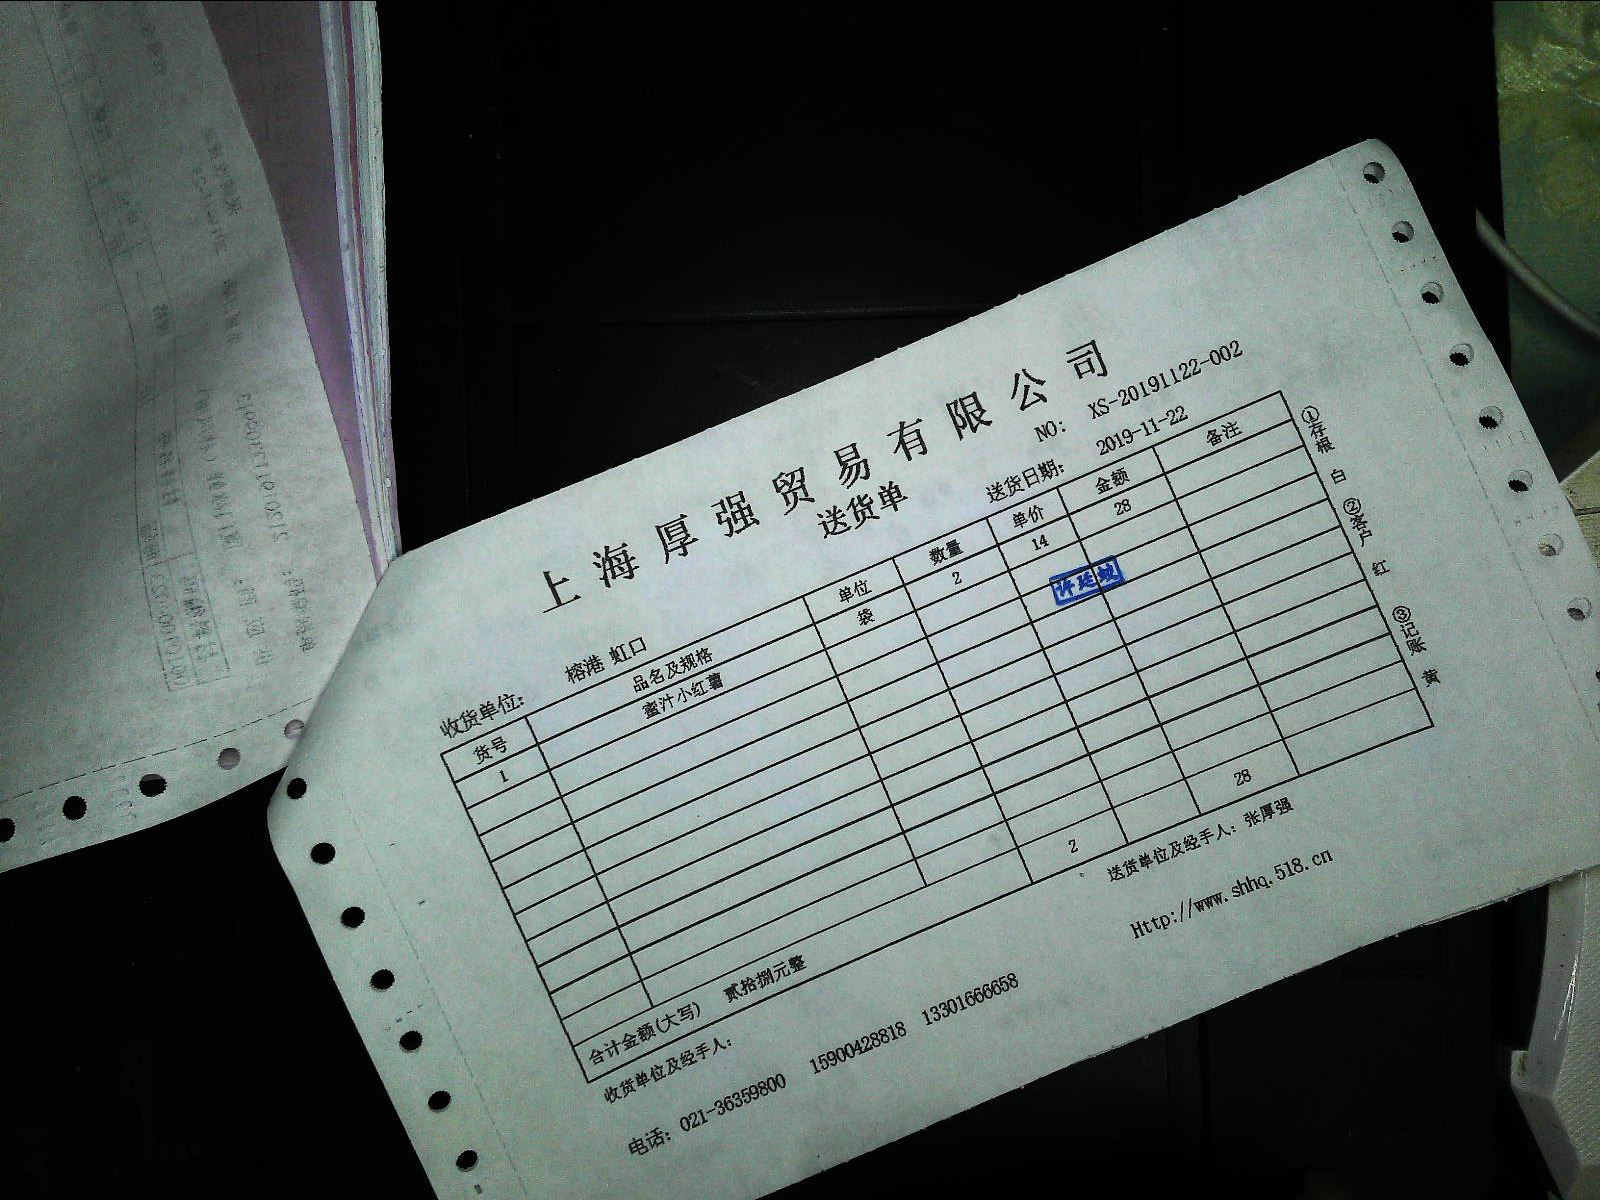 上海厚强贸易有限公司
送货单
NO: XS-20191122-002
收货单位: 榕港 虹口 送货日期: 2019-11-22
货号 品名及规格 单位 数量 单价 金额 备注
1 蜜汁小红薯 袋 2 14 28
2 28
合计金额(大写) 贰拾捌元整
收货单位及经手人: 送货单位及经手人: 张厚强
电话: 021-36359800 15900428818 13301666658 Http://www.shhq.518.cn
①存根 白 ②客户 红 ③记账 黄